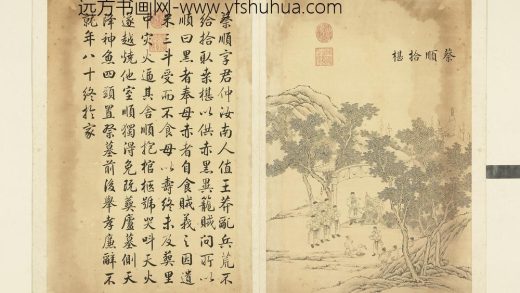 远方书画网-yfshuhua.com
蔡順拾椹
蔡順字君仲汝南人值王莽亂兵荒不
給拾取桑椹以供赤黑異籠賊問所以
順曰黑者奉母赤者自食賊義之因遺
米三斗受而不食母以壽終未及葬里
中災火逼其舍順抱棺柩號哭叫天火
遂越燒他室順獨得免既葬廬墓側天
降神魚四頭置祭墓前後舉孝廉辭不
就年八十終於家